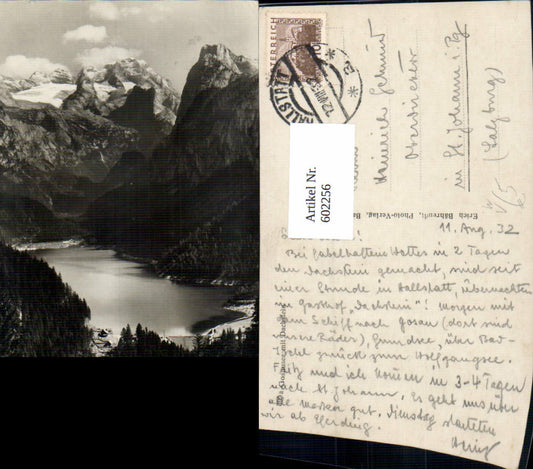 ÖSTERREICH
HALLSTATT
Artikel Nr.
602256
Heinrich
Oberdirektor
in St. Johann i. Pg
(Salzburg)
Erich Bährendt, Photo-Verlag, B
11. Aug. 32
Bei fabelhaftem Wetter in 2 Tagen
den Dachstein gemacht, sind seit
einer Stunde in Hallstatt, übernachten
in Gasthof „Dachstein“! Morgen mit
dem Schiff nach Gosau (dort sind
unsere Räder), Gmunden, über Bad-
Ischl zurück zum Wolfgangsee.
Fritz und ich kommen in 3-4 Tagen
nach St. Johann. Es geht uns
alle gut. Dienstag starteten
wir ab Eferding.